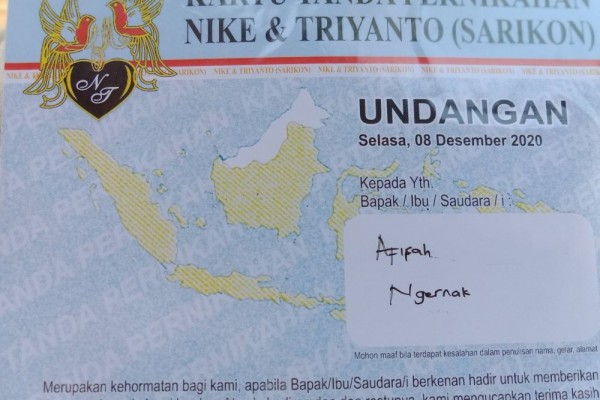 KARTU TANDA PERNIKAHAN
NIKE & TRIYANTO (SARIKON)
NIKE & TRIYANTO (SARIKON)
NT
UNDANGAN
Selasa, 08 Desember 2020
Kepada Yth.
Bapak / Ibu / Saudara / i :
Afifah
Ngernak
Mohon maaf bila terdapat kesalahan dalam penulisan nama, gelar, alamat
Merupakan kehormatan bagi kami, apabila Bapak/Ibu/Saudara/i berkenan hadir untuk memberikan
kami mengucapkan terima kasih